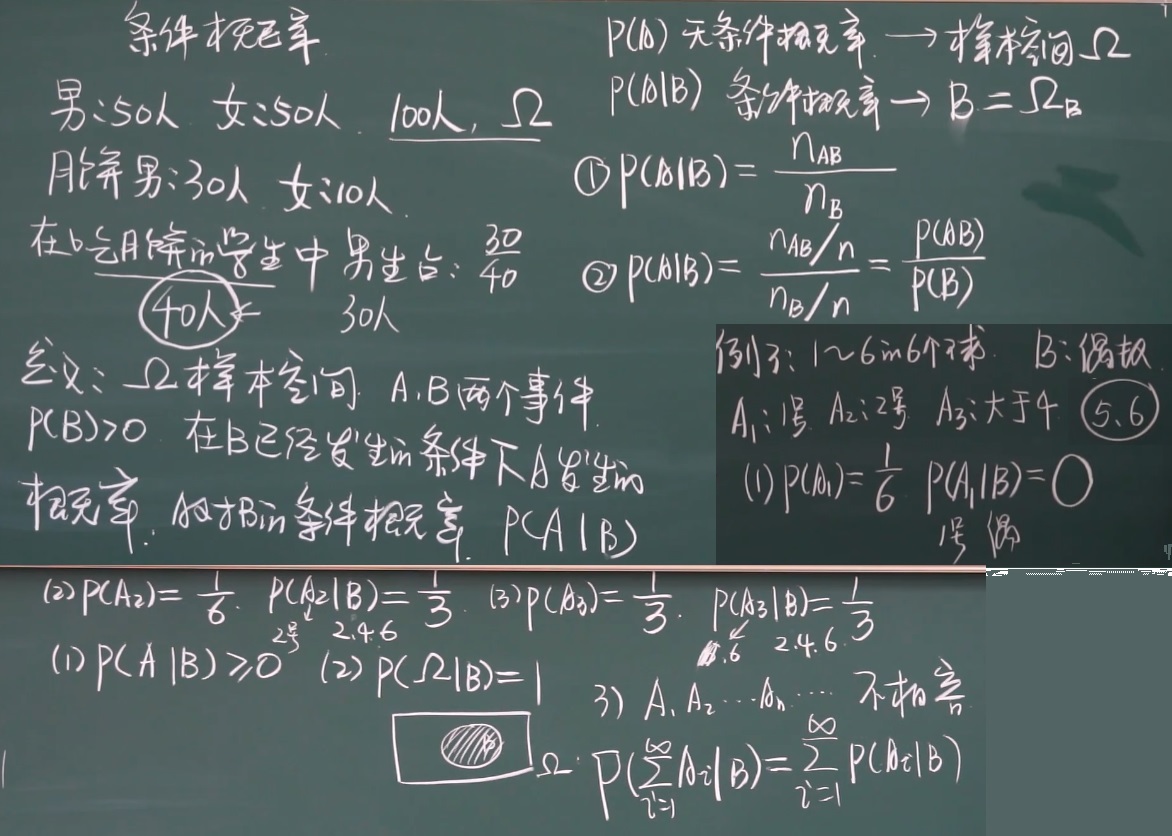 条件概率
男:50人 女:50人 100人, Ω
月饼男:30人 女:10人
在吃月饼的学生中 男生占: 30/40
40人 30人
定义: Ω样本空间 A.B两个事件
P(B)>0 在B已经发生的条件下A发生的
概率. A对B的条件概率. P(A|B)
P(A) 无条件概率. → 样本空间 Ω
P(A|B) 条件概率 → B = Ω_B
① P(A|B) = n_AB / n_B
② P(A|B) = (n_AB/n) / (n_B/n) = P(AB) / P(B)
例子: 1~6的6个球. B:偶数
A₁:1号 A₂:2号 A₃:大于4 5.6
(1) P(A₁) = 1/6 P(A₁|B) = 0
1号 偶
(2) P(A₂) = 1/6. P(A₂|B) = 1/3. (3) P(A₃) = 1/3. P(A₃|B) = 1/3
2号 2.4.6 .6 2.4.6.
(1) P(A|B) ≥ 0 (2) P(Ω|B) = 1
3) A₁ A₂ ⋯ Aₙ ⋯ 不相容
B Ω.
P(∑_{i=1}^{∞} A_i|B) = ∑_{i=1}^{∞} P(A_i|B)